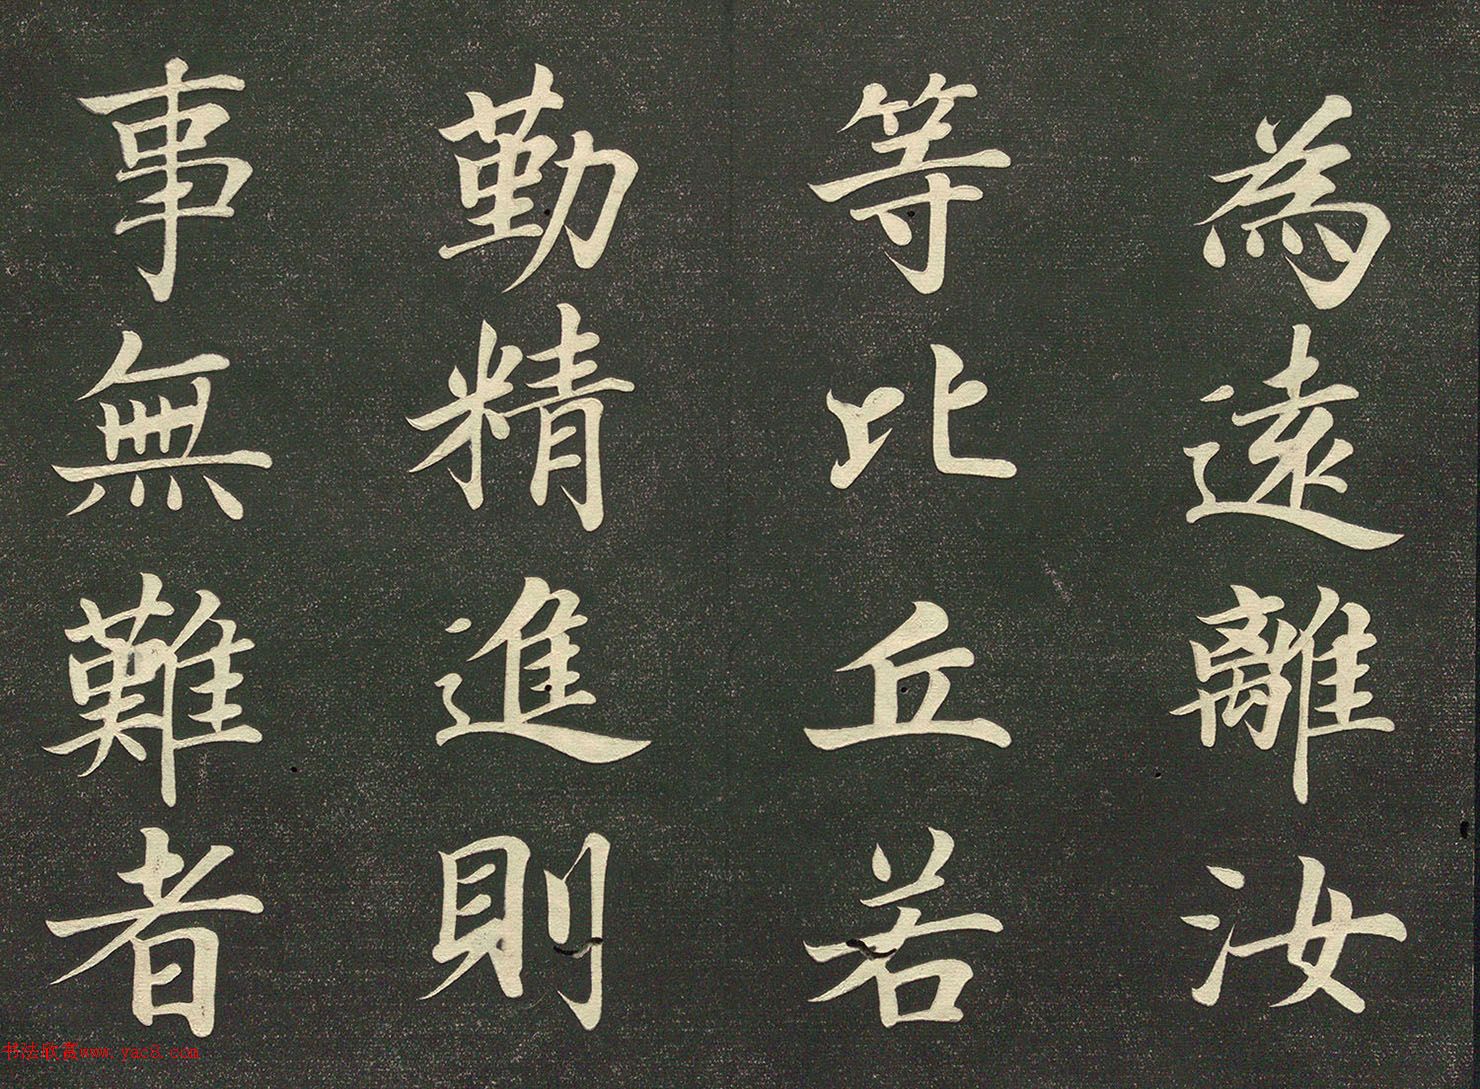 為遠離汝
等比丘若
勤精進則
事無難者
书法欣赏www.yac8.com